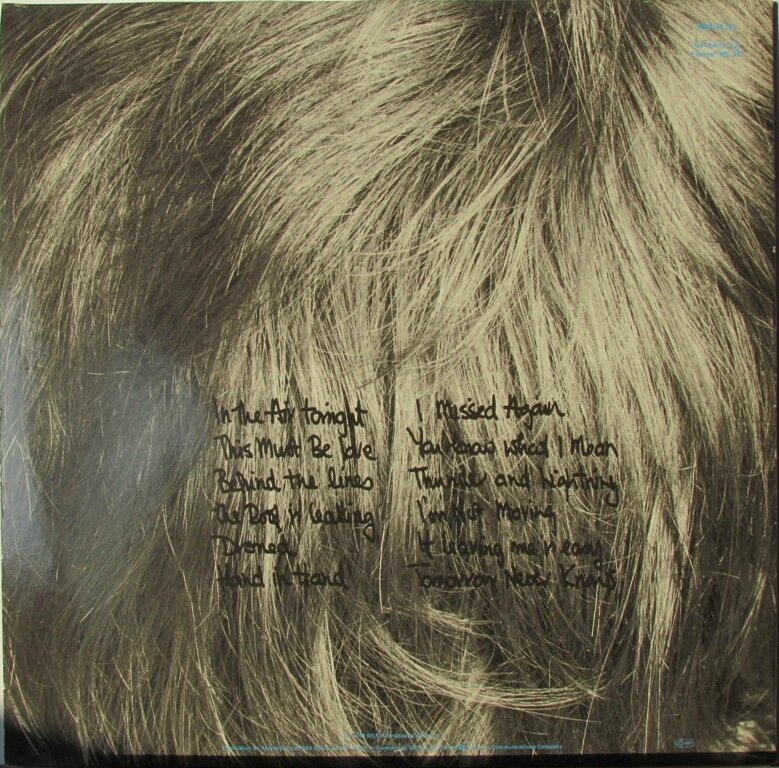 In The Air tonight
This Must Be love
Behind the lines
the Roof is leaking
Droned
Hand in Hand
I Missed Again
You know What I Mean
Thunder and Lightning
I'm Not Moving
If leaving me is easy
Tomorrow Never Knows
Communications Company